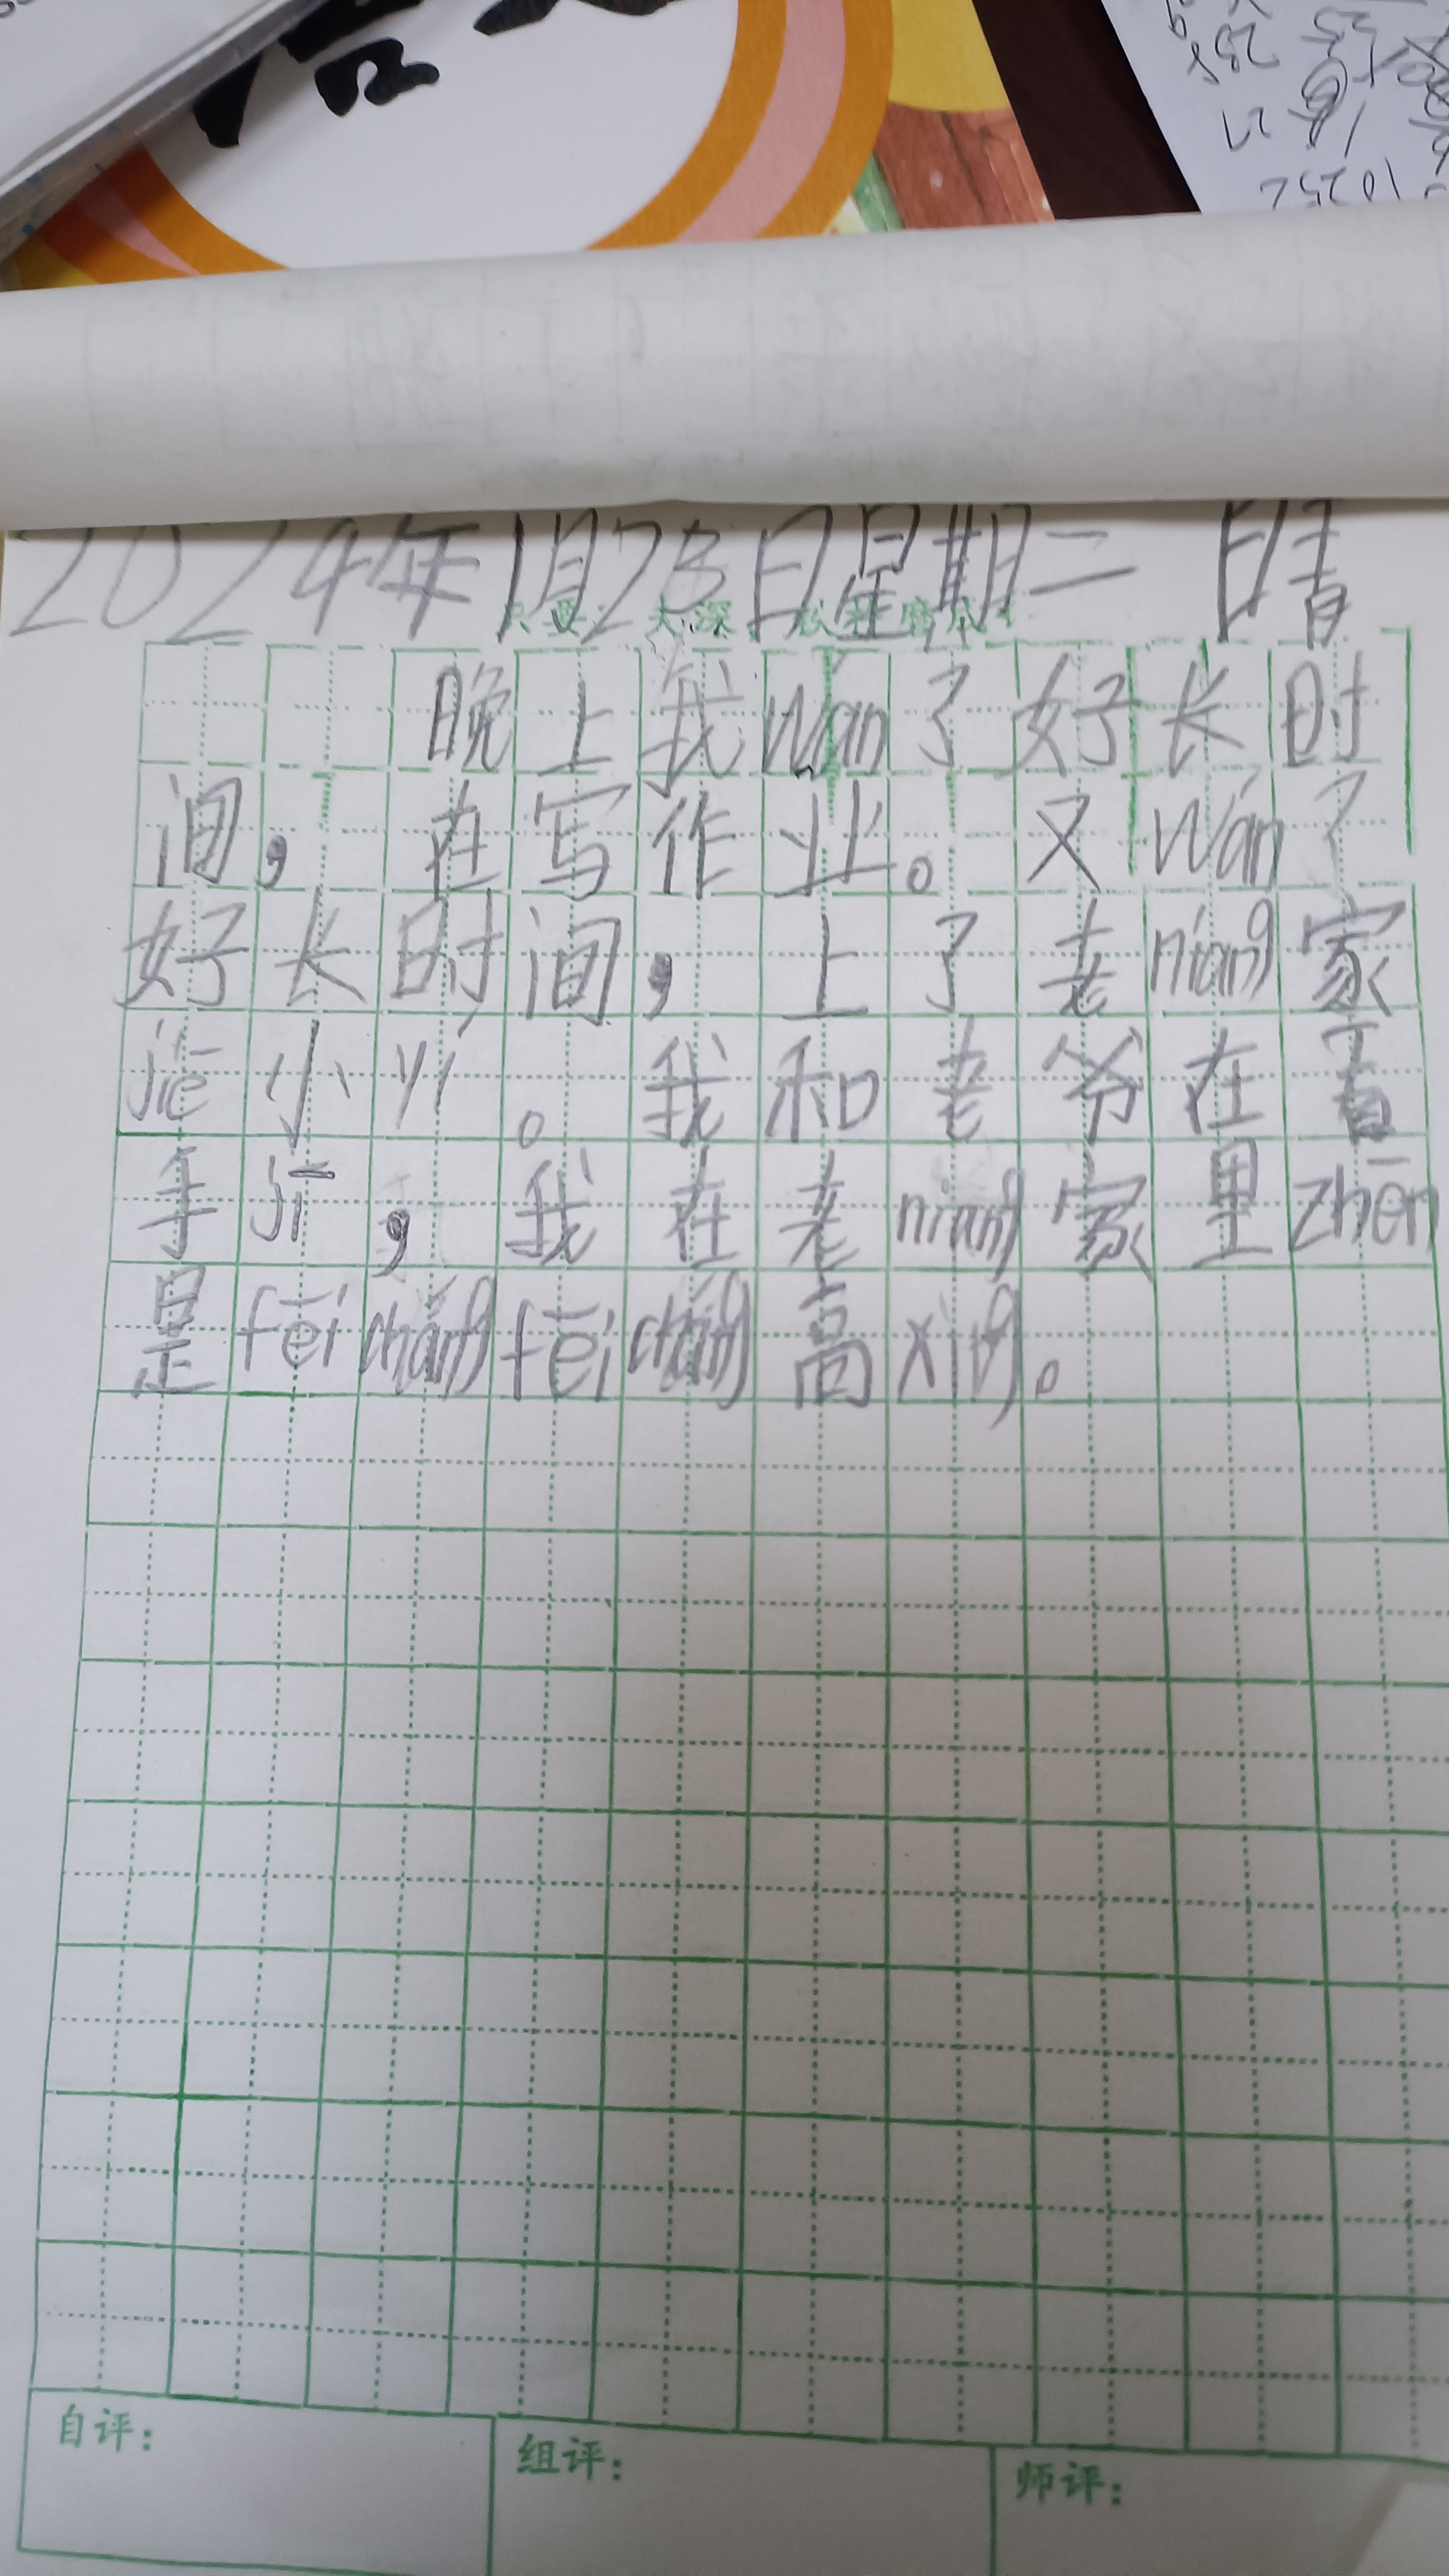 2024年1月23日星期二 晴
晚上我wán了好长时
间，在写作业。又wán了
好长时间，上了老niáng家
jiē小火。我和老爷在看
手jī，我在老niáng家里zhēn
是fēi cháng fēi cháng高xìng。
自评：
组评：
师评：